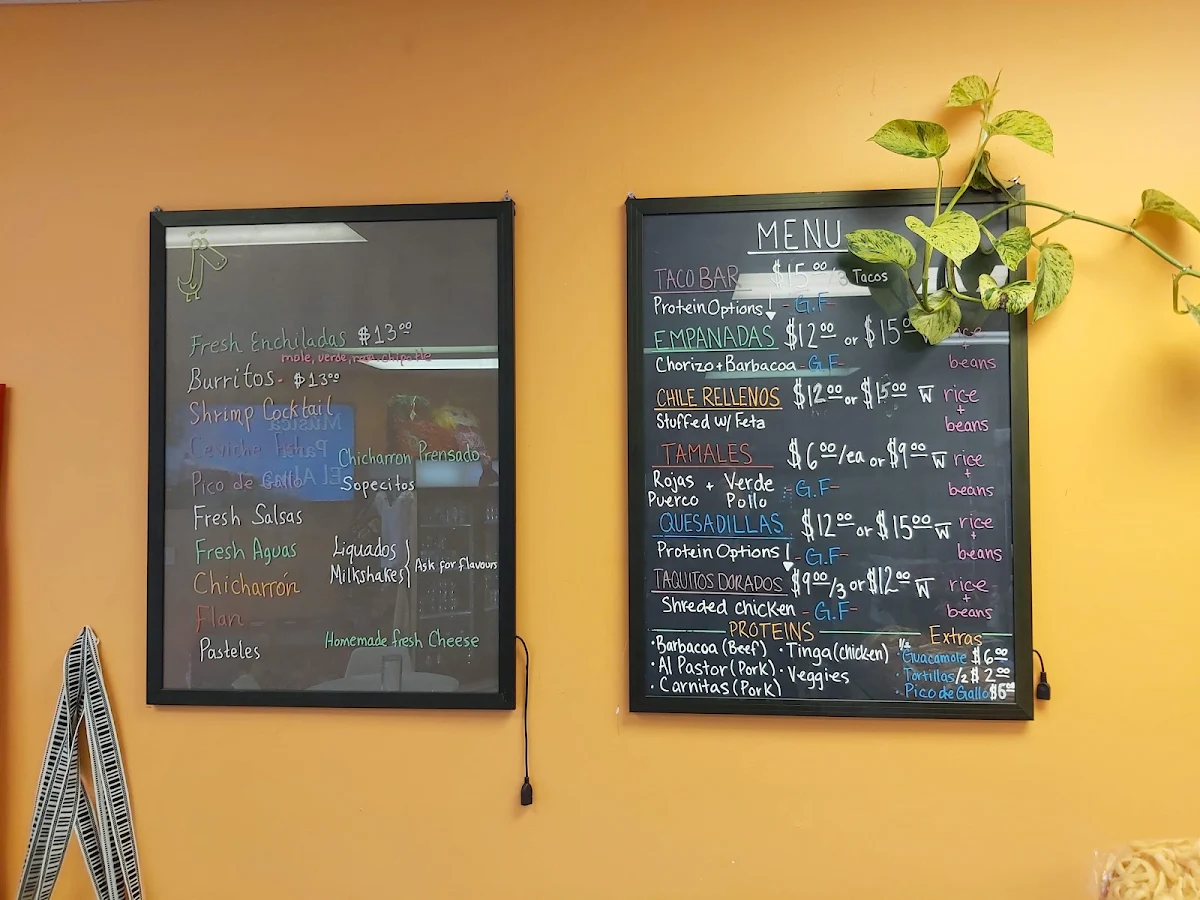 Fresh Enchiladas $13.00
mole, verde, roja, chipotle
Burritos - $13.00
Shrimp Cocktail
Ceviche
Pico de Gallo
Fresh Salsas
Fresh Aguas
Chicharrón
Flan
Pasteles
Chicharron Prensado
Sopecitos
Liquados
Milkshakes
Ask for flavours
Homemade fresh Cheese
MENU
TACO BAR $15.00/3 Tacos
Protein Options! - G.F-
EMPANADAS $12.00 or $15.00 rice + beans
Chorizo + Barbacoa - G.F-
CHILE RELLENOS $12.00 or $15.00 W rice + beans
Stuffed W/ Feta
TAMALES $6.00/ea or $9.00 W rice + beans
Rojas + Verde
Puerco Pollo - G.F-
QUESADILLAS $12.00 or $15.00 W rice + beans
Protein Options! - G.F-
TAQUITOS DORADOS $9.00/3 or $12.00 W rice + beans
Shreded chicken - G.F-
PROTEINS
• Barbacoa (Beef) • Tinga (chicken)
• Al Pastor (Pork) • Veggies
• Carnitas (Pork)
Extras
Guacamole $6.00
• Tortillas/2 $2.00
• Pico de Gallo $6.00